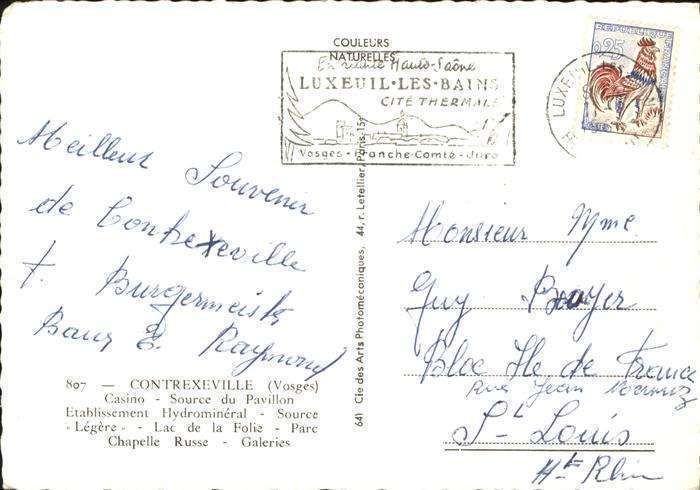 COULEURS
NATURELLES
En visite Haute-Saône
LUXEUIL·LES·BAINS
CITÉ THERMALE
Vosges - Franche-Comté - Jura
REPUBLIQUE FRANÇAISE
0,25
POSTES
LUXEUIL
Meilleur Souvenir
de Contrexeville
f. Burgermeister
Raymond
807 — CONTREXEVILLE (Vosges)
Casino - Source du Pavillon
Etablissement Hydrominéral - Source
« Légère » - Lac de la Folie - Parc
Chapelle Russe - Galeries
641 Cie des Arts Photomécaniques, 44, r. Letellier, Paris-15e
Monsieur Mme
Guy Boyer
Bloc Ile de France
Rue Jean Mermoz
St Louis
Ht Rhin